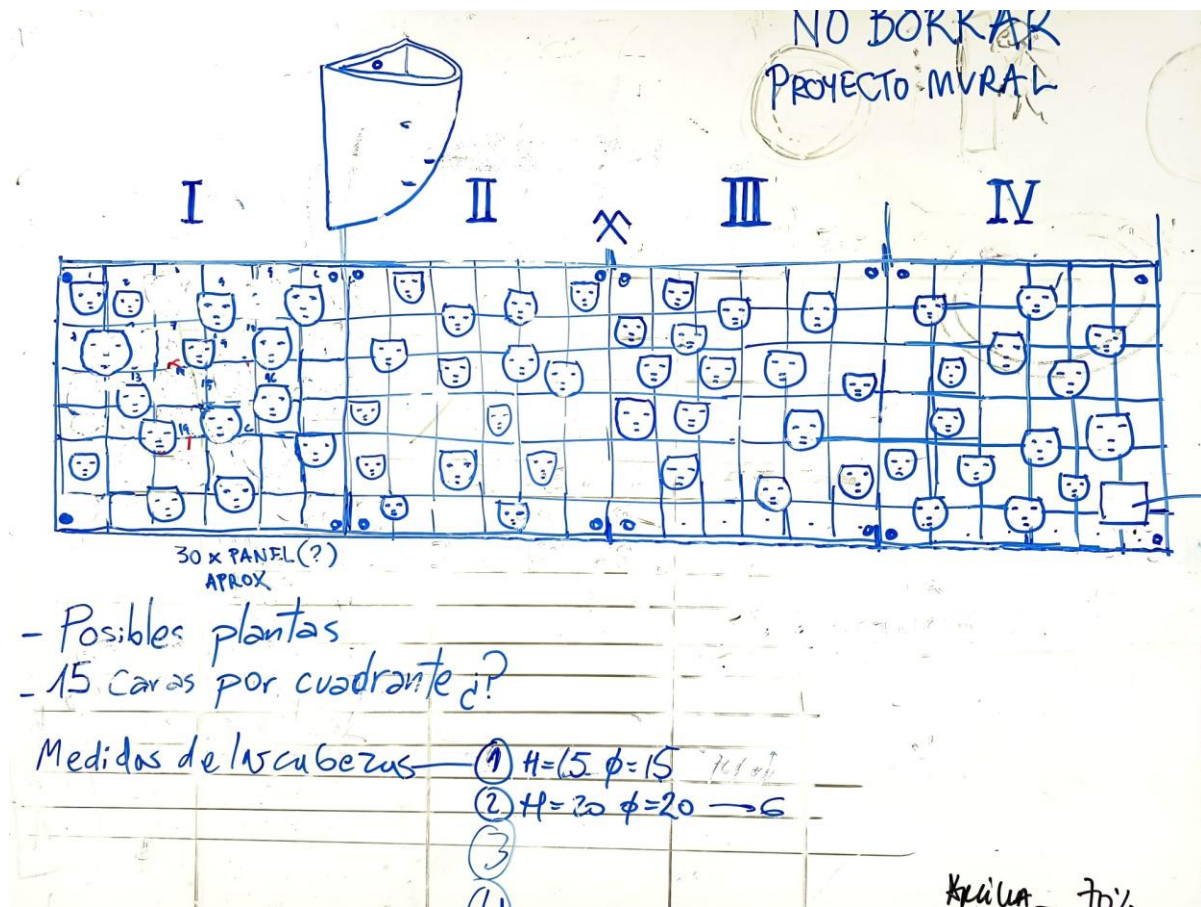 NO BORRAR
PROYECTO MURAL
I II III IV
30 x PANEL (?)
APROX
- Posibles plantas
- 15 caras por cuadrante ¿?
Medidas de las cabezas — ① H=15 φ=15
② H=20 φ=20 → 6
③
④
ARCILLA - 70%